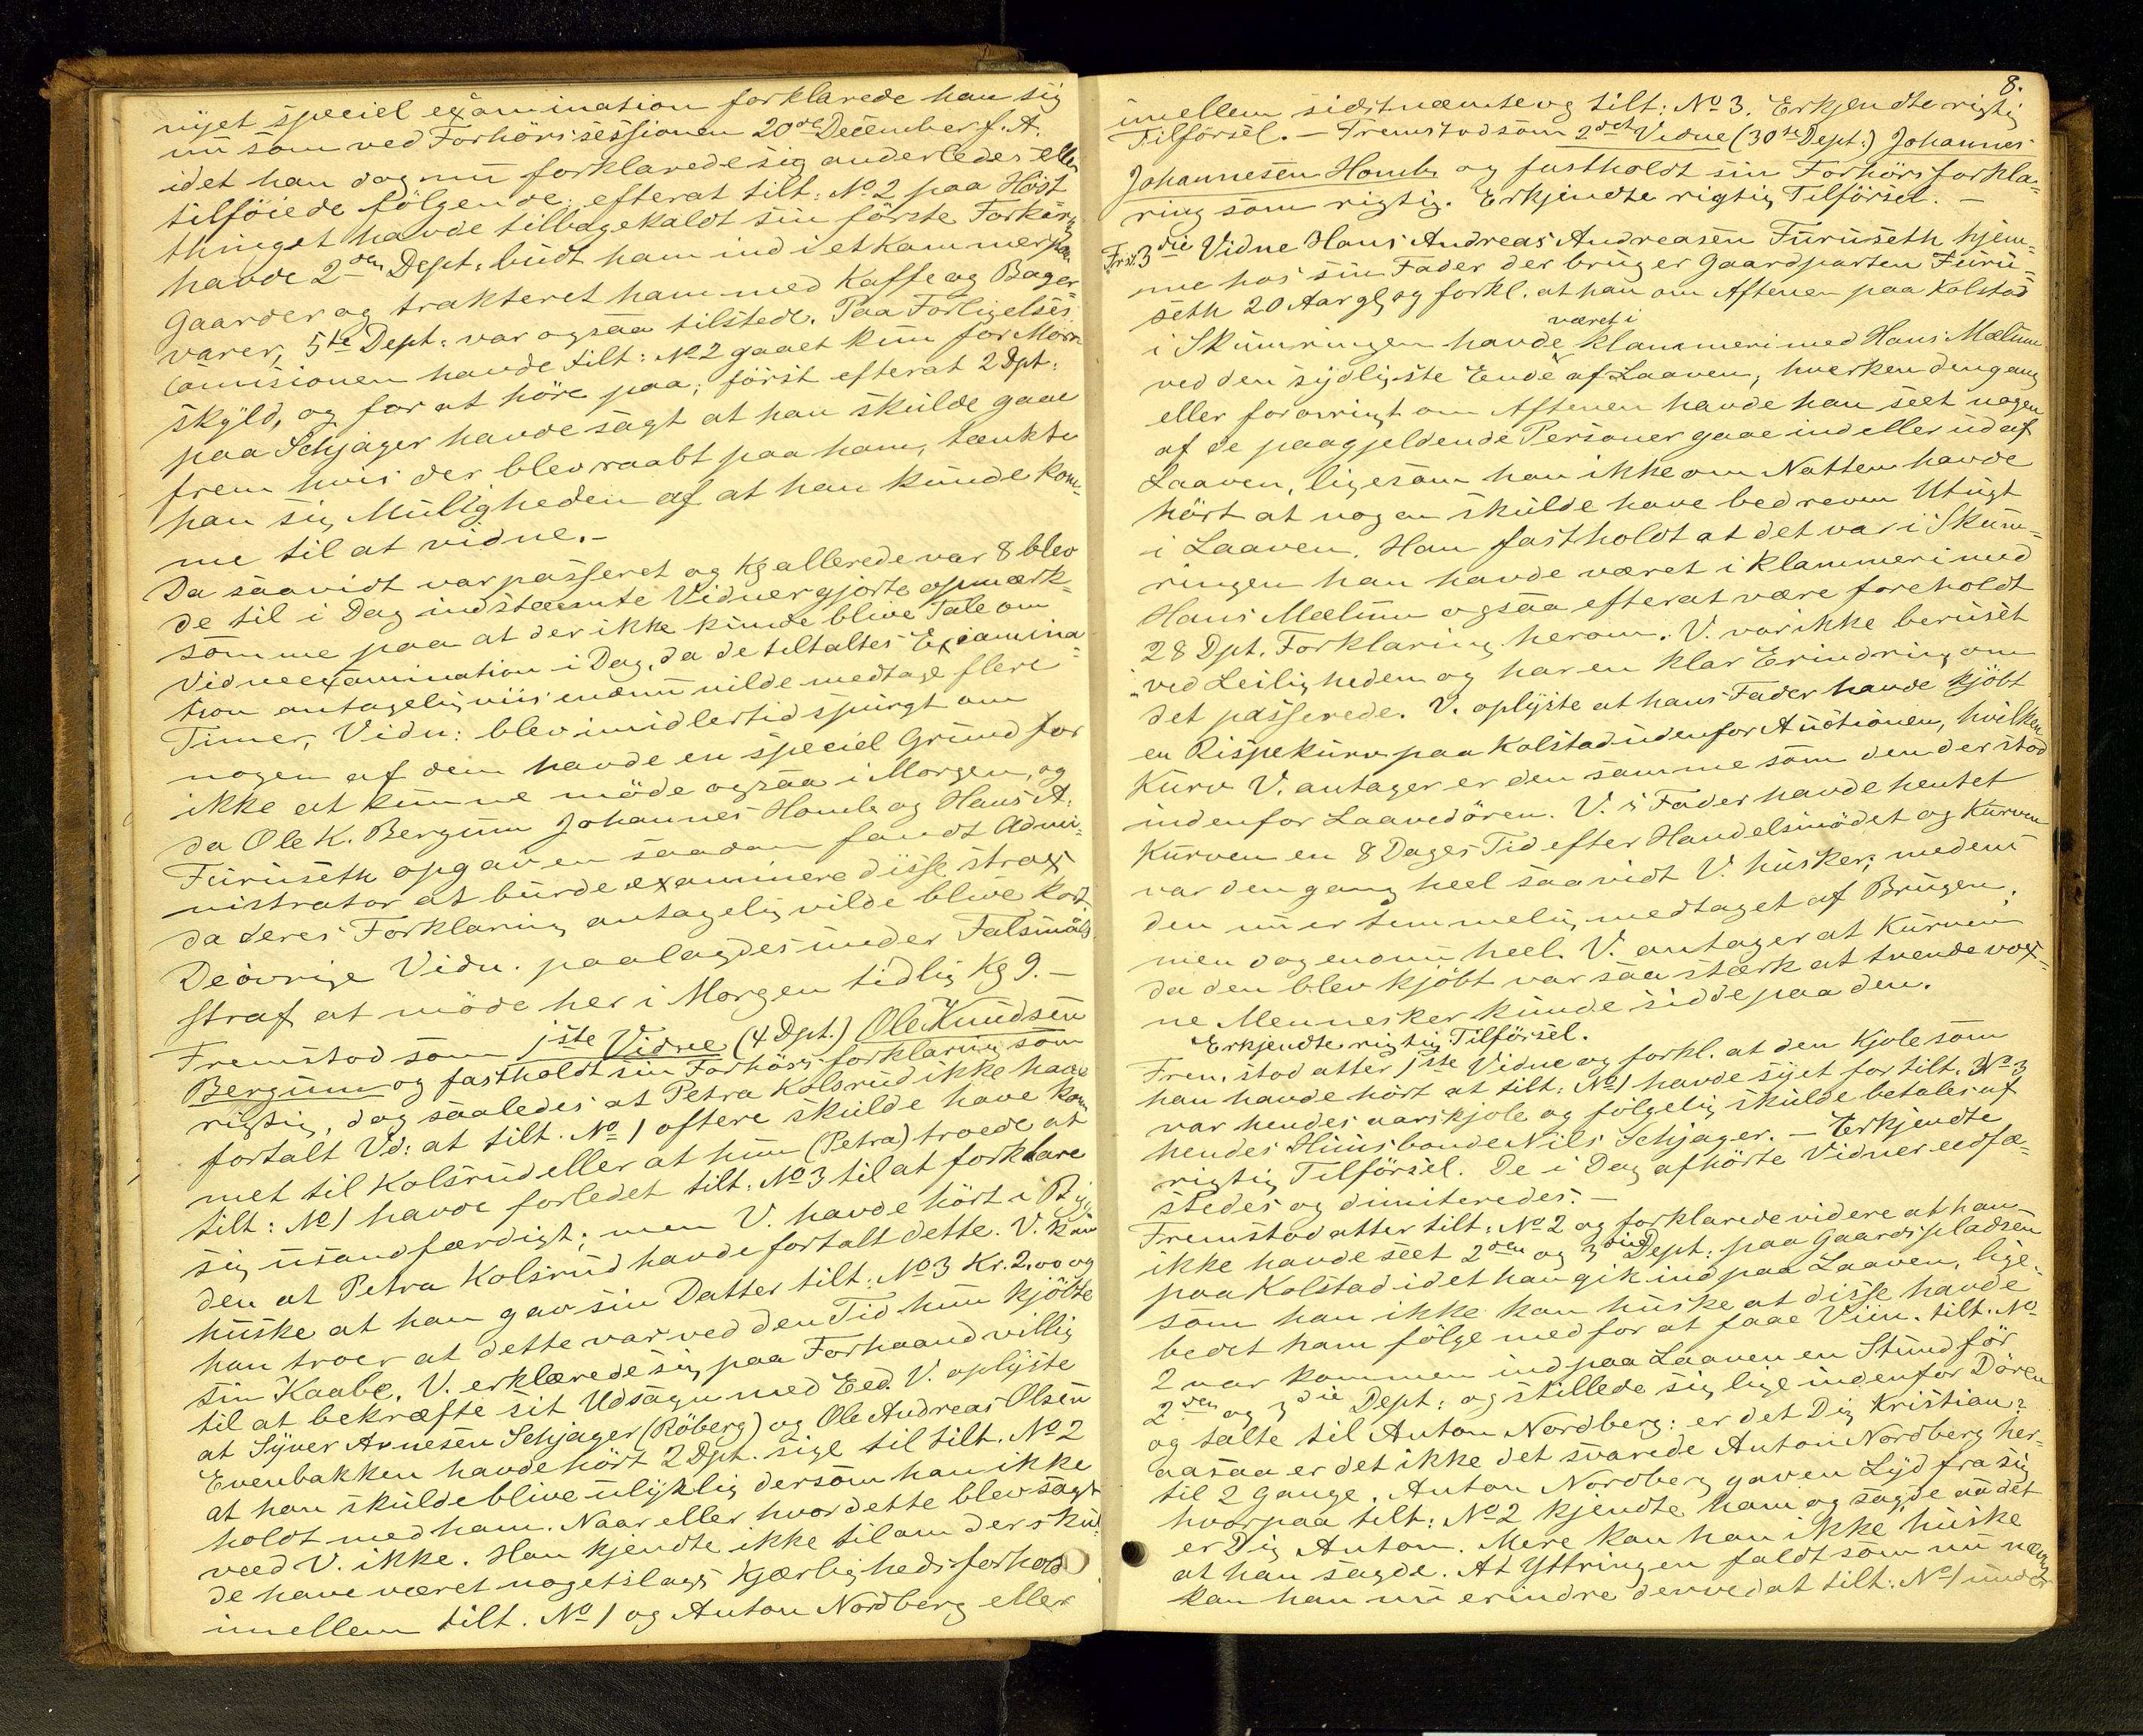 nyet speciel examination forklarede han sig
nu som ved Forhörssessionen 20de December f. A.
idet han dog nu forklarede sig anderledes eller
tilföiede fölgende: efterat tilt: No 2 paa Höst
thinget havde tilbagekaldt sin förste Forkaring
havde 2den Dept: budt ham ind i et Kammer paa
Gaarder og trakteret ham med Kaffe og Bager
varer, 5te Dept: var ogsaa tilstede. Paa Forligelses
comisionen havde tilt: No 2 gaaet kun for Moro
skyld, og for at höre paa; först efterat 2 Dpt:
paa Schjager havde sagt at han skulde gaae
frem hvis der blev raabt paa ham, tænkte
han sig Muligheden af at han kunde kom-
me til at vidne.-
Da saavidt var passeret og Kg allerede var 8 blev
de til i Dag indstævnte Vidner gjorte opmærk-
somme paa at der ikke kunde blive Tale om
Vidneexamination i Dag, da de tiltaltes Examina-
tion antageligviis endnu vilde medtage flere
Timer, Vidn: blev imidlertid spurgt om
nogen af dem havde en speciel Grund for
ikke at kunne möde ogsaa i Morgen, og
da Ole K. Bergum Johannes Homb og Hans A.
Furuseth opgav en saadan fandt Admi-
nistrator at burde examinere disse strax
da deres Forklaring antagelig vilde blive kort.
De övrige Vidn. paalagdes under Falsmaals
straf at möde her i Morgen tidlig Kg 9.-
Fremstod som 1ste Vidne (4 Dpt.) Ole Knudsen
Bergum og fastholdt sin Forhörsforklaring som
rigtig, dog saaledes at Petra Kolsrud ikke have
fortalt Vd: at tilt. No 1 oftere skulde have kom
met til Kolsrud eller at hun (Petra) troede at
tilt: No 1 havde forledet tilt: No 3 til at forklare
sig usandfærdigt; men V. havde hört i Byg
den at Petra Kolsrud havde fortalt dette. V. kun
huske at han gav sin Datter tilt: No 3 Kr. 2.00 og
han troer at dette var ved den Tid hun kjöbte
sin Kaabe. V. erklærede sig paa Forhaand villig
til at bekræfte sit Udsagn med Eed. V. oplyste
at Syver Arnesen Schjager (Röberg) og Ole Andreas Olsen
Evenbakken havde hört 2 Dpt. sige til tilt. No 2
at han skulde blive ulyklig dersom han ikke
holdt med ham. Naar eller hvor dette blev sagt
veed V. ikke. Han kjendte ikke til om der skul
de have været nogetslags Kjærlighedsforhold
imellem tilt. No 1 og Anton Nordberg eller
8.
imellem sidstnævnte og tilt: No 3. Erkjendte rigtig
Tilförsel. - Fremstod som 2det Vidne (30te Dept:) Johannes
Johannesen Homb og fastholdt sin Forhörsforkla-
ring som rigtig. Erkjendte rigtig Tilförsel. -
Frst. 3die Vidne Hans Andreas Andreasen Furuseth hjem-
me hos sin Fader der bruger Gaardparten Furu-
seth 20 Aar gl og forkl. at han om Aftenen paa Kolstad
været i
i Skumringen havde klammeri med Hans Mælum
ved den sydligste Ende af Laaven, hverken dengang
eller forövrigt om Aftenen havde han seet nogen
af de paagjeldende Personer gaae ind eller ud af
Laaven, ligesom han ikke om Natten havde
hört at nogen skulde have bedreven Utugt
i Laaven. Han fastholdt at det var i Skum-
ringen han havde været i klammeri med
Hans Mælum ogsaa efterat være foreholdt
28 Dpt. Forklaring herom. V. var ikke beruset
ved Leiligheden og har en klar Erindring om
det passerede. V. oplyste at hans Fader havde kjöbt
en Rispekurv paa Kolstad udenfor Auctionen, hvilken
Kurv V. antager er den samme som den der stod
indenfor Laavedören. V.s Fader havde hentet
Kurven en 8 Dages Tid efter Handelsmödet og Kurven
var dengang heel saavidt V. husker; medens
den nu er temmelig medtaget af Brugen,
men dog endnu heel. V. antager at Kurven
da den blev kjöbt var saa stærk at tvende vox-
ne Mennesker kunde sidde paa den.
Erkjendte rigtig Tilförsel.
Frem.stod atter 1ste Vidne og forkl. at den Kjole som
han havde hört at tilt: No 1 havde syet for tilt. No 3
var hendes aarskjole og fölgelig skulde betales af
hendes Huusbonde Nils Schjager. - Erkjendte
rigtig Tilförsel. De i Dag afhörte Vidner eedfæ-
stedes og dimiteredes. -
Fremstod atter tilt: No 2 og forklarede videre at han
ikke havde seet 2den og 3die Dept: paa Gaardspladsen
paa Kolstad idet han gik ind paa Laaven, lige-
som han ikke kan huske at disse havde
bedet ham fölge med for at faae Viin. tilt. No
2 var kommen ind paa Laaven en Stund för
2den og 3die Dept: og stillede sig lige indenfor Dören
og talte til Anton Nordberg: er det Dig Kristian?
aasaa er det ikke det svarede Anton Nordberg her-
til 2 Gange. Anton Nordberg gav en Lyd fra sig
hvorpaa tilt: No 2 kjendte ham og sagde aa det
er Dig Anton. Mere kan han ikke huske
at han sagde. At Yttringen faldt som nu nævnt
kan han nu erindre derved at tilt: No 1 under